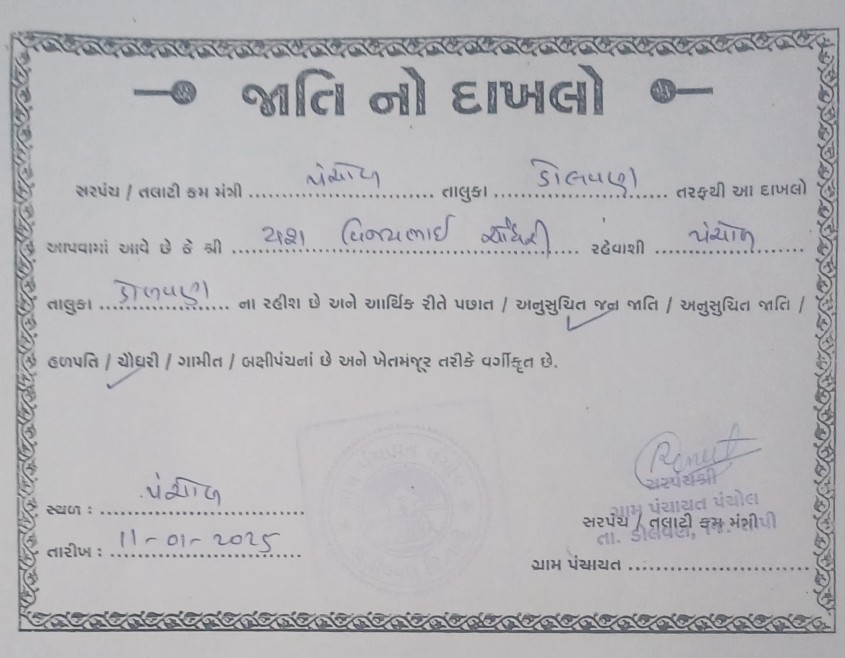 જાતિ નો દાખલો
સરપંચ / તલાટી કમ મંત્રી પંચોળ તાલુકા ડોલવણ તરફથી આ દાખલો
આપવામાં આવે છે કે શ્રી યશ વિજયભાઈ ચૌધરી રહેવાશી પંચોળ
તાલુકા ડોલવણ ના રહીશ છે અને આર્થિક રીતે પછાત / અનુસુચિત જન જાતિ / અનુસુચિત જાતિ /
હળપતિ / ચૌધરી / ગામીત / બક્ષીપંચનાં છે અને ખેતમંજૂર તરીકે વર્ગીકૃત છે.
સ્થળ : પંચોળ
તારીખ : 11-01-2025
સરપંચશ્રી
ગ્રામ પંચાયત પંચોલ
સરપંચ / તલાટી કમ મંત્રી
તા. ડોલવણ,
ગ્રામ પંચાયત